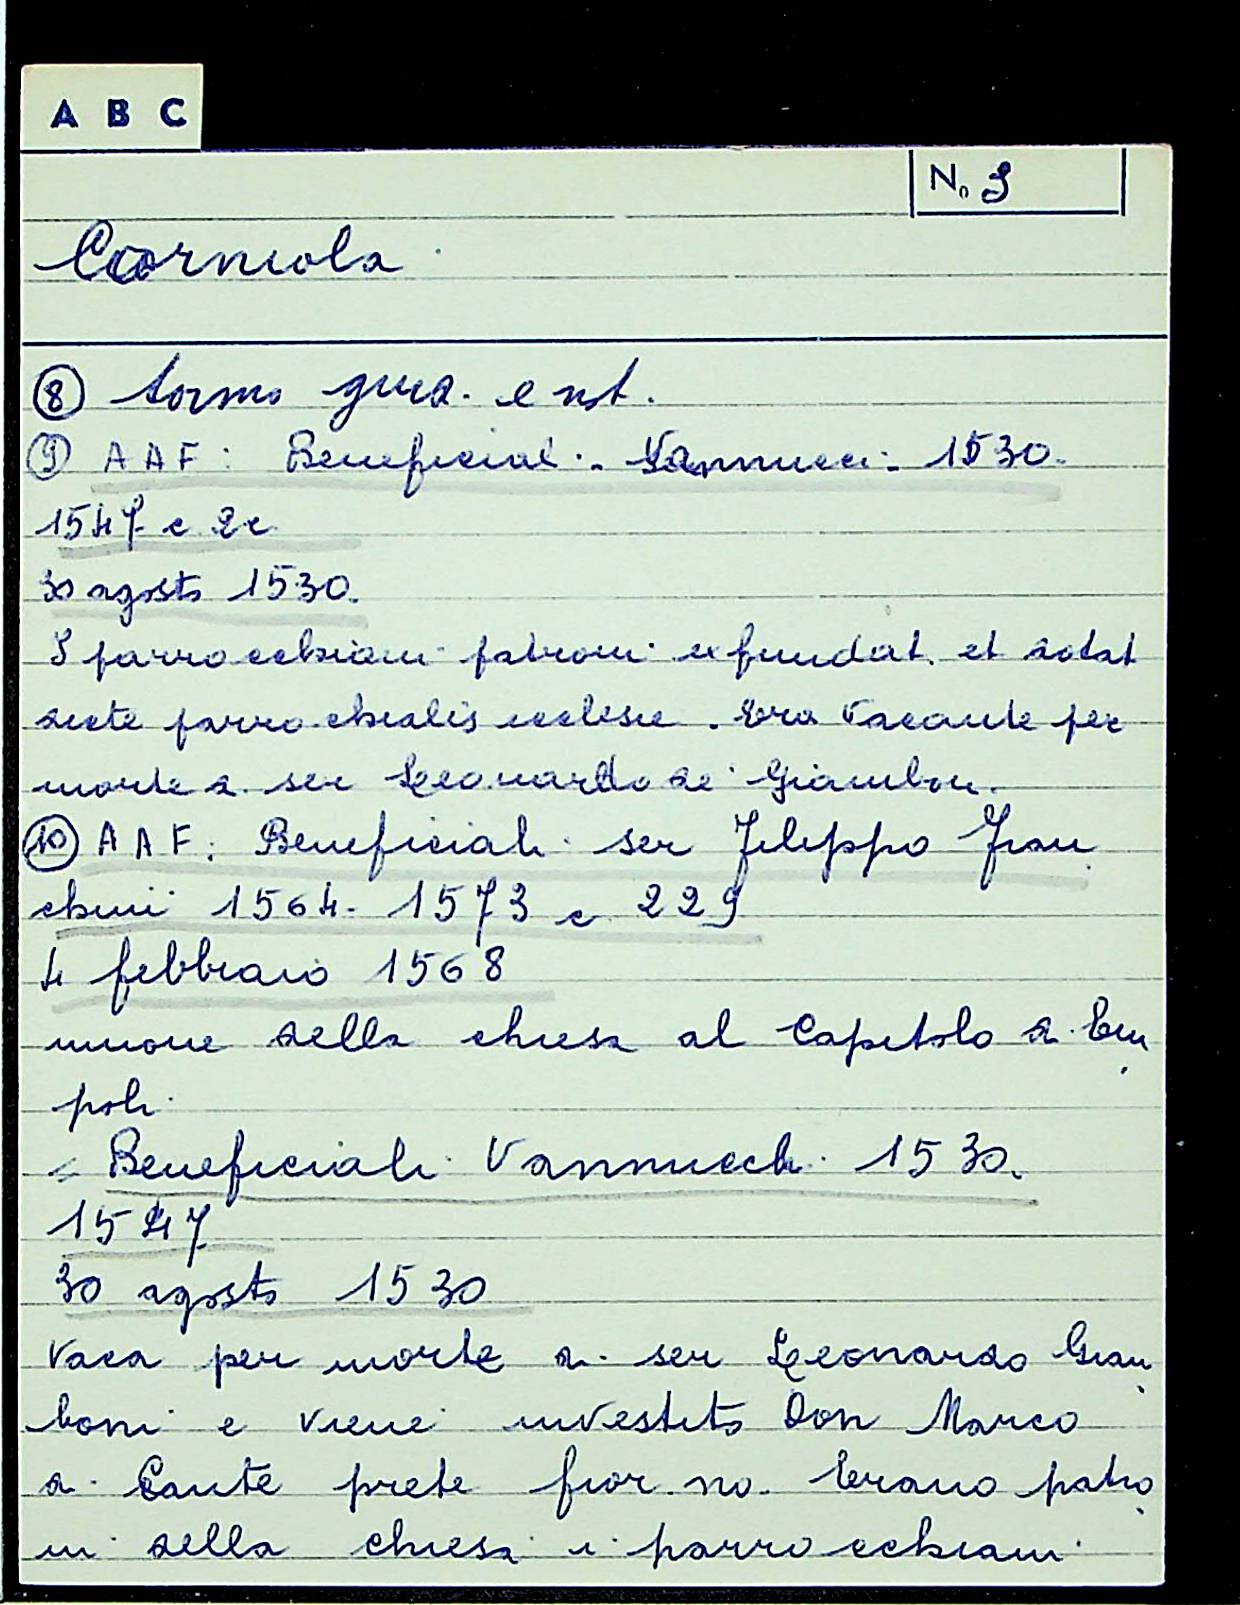 A B C
N. 3
Corniola
⑧ torno giura. e not.
⑨ AAF: Beneficial. Vannucci. 1530.
1547 c 2c
30 agosto 1530.
I parrocchiani patroni ex fundat. et dotat
dicte parrochialis ecclesie. Era vacante per
morte di ser Leonardo de Giamboni.
⑩ AAF: Beneficiali ser Filippo Fran
chini 1564-1573 c 229
4 febbraio 1568
unione della chiesa al Capitolo di Em
poli.
= Beneficiali Vannucch. 1530.
1547
30 agosto 1530
Vaca per morte di ser Leonardo Giam
boni e viene investito Don Marco
di Cante prete fior.no. Erano patro
ni della chiesa i parrocchiani